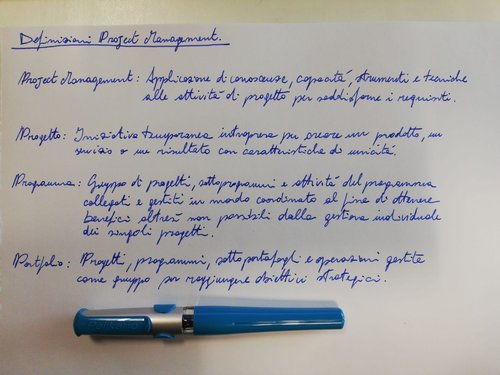 Definizioni Project Management.
Project Management: Applicazione di conoscenze, capacità, strumenti e tecniche
alle attività di progetto per soddisfarne i requisiti.
Progetto: Iniziativa temporanea intrapresa per creare un prodotto, un
servizio o un risultato con caratteristiche di unicità.
Programma: Gruppo di progetti, sottoprogrammi e attività del programma
collegati e gestiti in modo coordinato al fine di ottenere
benefici altresì non possibili dalla gestione individuale
dei singoli progetti.
Portfolio: Progetti, programmi, sottoportafogli e operazioni gestite
come gruppo per raggiungere obiettivi strategici.